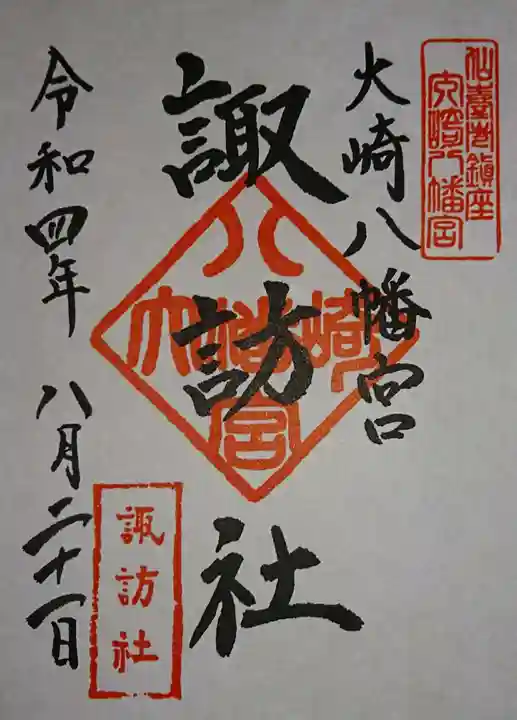 仙臺總鎮座
大崎八幡宮
大崎八幡宮
諏訪社
八幡宮
大崎
令和四年 八月二十一日
諏訪社